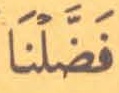 فَضَّلْنَا